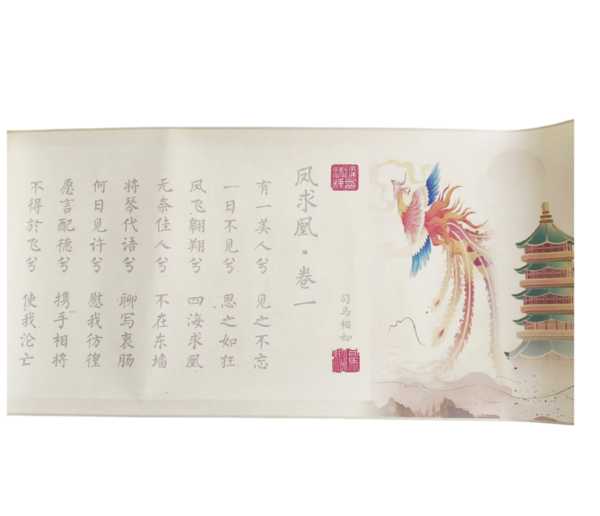 司马相如
凤求凰·卷一
有一美人兮 见之不忘
一日不见兮 思之如狂
凤飞翱翔兮 四海求凰
无奈佳人兮 不在东墙
将琴代语兮 聊写衷肠
何日见许兮 慰我彷徨
愿言配德兮 携手相将
不得於飞兮 使我沦亡